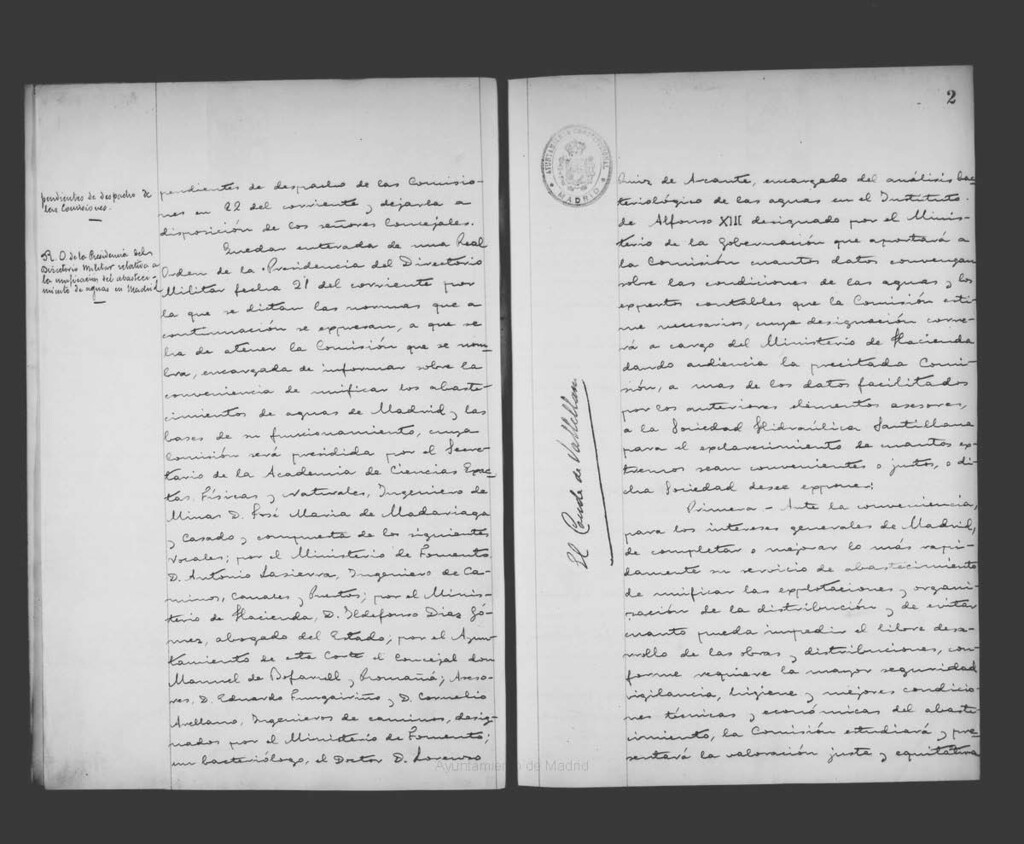 pendientes de despacho de
las Comisiones.
R. O. de la Presidencia del
Directorio Militar relativa a
la unificación del abasteci-
miento de aguas en Madrid
pendientes de despacho de las Comisio-
nes en 22 del corriente y dejarla a
disposición de los señores Concejales.
Quedar enterada de una Real
Orden de la Presidencia del Directorio
Militar fecha 21 del corriente por
la que se dictan las normas que a
continuación se expresan, a que se
ha de atener la Comisión que se nom-
bra, encargada de informar sobre la
conveniencia de unificar los abaste-
cimientos de aguas de Madrid y las
bases de su funcionamiento, cuya
Comisión será presidida por el Secre-
tario de la Academia de Ciencias Exac-
tas, Físicas y Naturales, Ingeniero de
Minas D. José Maria de Madariaga
y Casado y compuesta de los siguientes
vocales; por el Ministerio de Fomento
D. Antonio Lasierra, Ingeniero de Ca-
minos, Canales y Puertos; por el Minis-
terio de Hacienda, D. Ildefonso Diaz Gó-
mez, abogado del Estado; por el Ayun-
tamiento de esta Corte el Concejal don
Manuel de Bofarull y Romañá; Aseso-
res, D. Eduardo Fungairiño y D. Cornelio
Arellano, Ingenieros de caminos, desig-
nados por el Ministerio de Fomento;
un bacteriólogo, el Doctor D. Lorenzo
Ayuntamiento de Madrid
2
AYUNTAMIENTO CONSTITUCIONAL
MADRID
El Conde de Vallellano
Ruiz de Arcaute, encargado del análisis bac-
teriológico de las aguas en el Instituto
de Alfonso XIII designado por el Minis-
terio de la Gobernación que aportará a
la Comisión cuantos datos convengan
sobre las condiciones de las aguas y los
expertos contables que la Comisión esti-
me necesarios, cuya designación corre-
rá a cargo del Ministerio de Hacienda
dando audiencia la precitada Comi-
sión, a mas de los datos facilitados
por los anteriores elementos asesores,
a la Sociedad Hidraúlica Santillana
para el esclarecimiento de cuantos ex-
tremos sean convenientes o justos, o di-
cha Sociedad desee exponer:
Primera - Ante la conveniencia,
para los intereses generales de Madrid,
de completar o mejorar lo más rapi-
damente su servicio de abastecimiento
de unificar las explotaciones y organi-
zación de la distribución y de evitar
cuanto pueda impedir el libre desa-
rrollo de las obras y distribuciones, con-
forme requiere la mayor seguridad
vigilancia, higiene y mejores condicio-
nes técnicas y económicas del abaste-
cimiento, la Comisión estudiará y pre-
sentará la valoración justa y equitativa